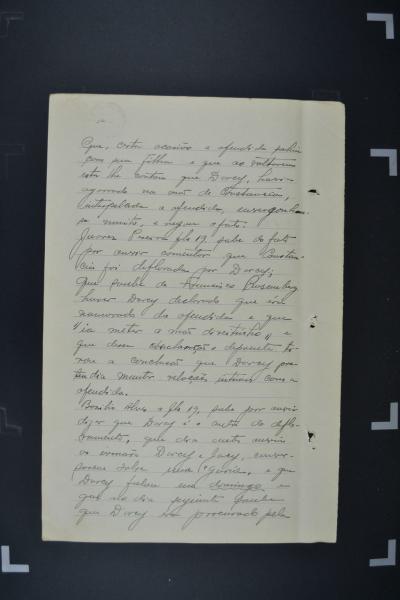 Que, certa ocasião a ofendida sahiu
com sua filha e que ao voltarem
esta lhe contou que Darcy, havia
agarrado na mão de Constancia,
interpelada a ofendida, envergonhou-
se muito, e negou o fato.
Juarez Pereira fls 17, sabe do fato
por ouvir comentar que Constan-
cia foi deflorada por Darcy;
que soube de Francisco Rosemberg
haver Darcy declarado que era
namorado da ofendida e que
"ia meter a mão direitinho" e
que dessa declaração o depoente ti-
rou a conclusão que Darcy pre-
tendia manter relações intimas com a
ofendida.
Brasilio Alves fls 19, sabe por ouvir
dizer que Darcy é o autor do deflo-
ramento, que dia certo ouviu
os irmãos Darcy e Jacy, conver-
sarem sobre uma "guria", e que
Darcy falou em domingo e
que no dia seguinte soube
que Darcy era procurado pela